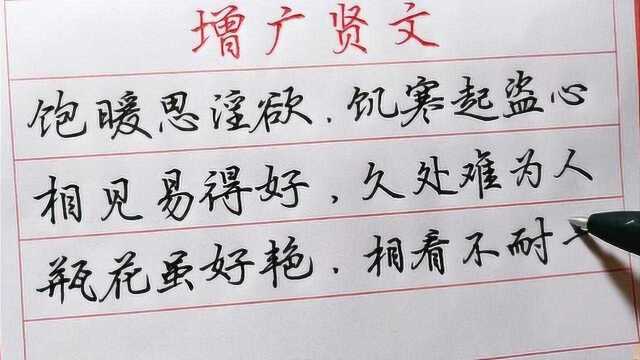 增广贤文
饱暖思淫欲，饥寒起盗心
相见易得好，久处难为人
瓶花虽好艳，相看不耐